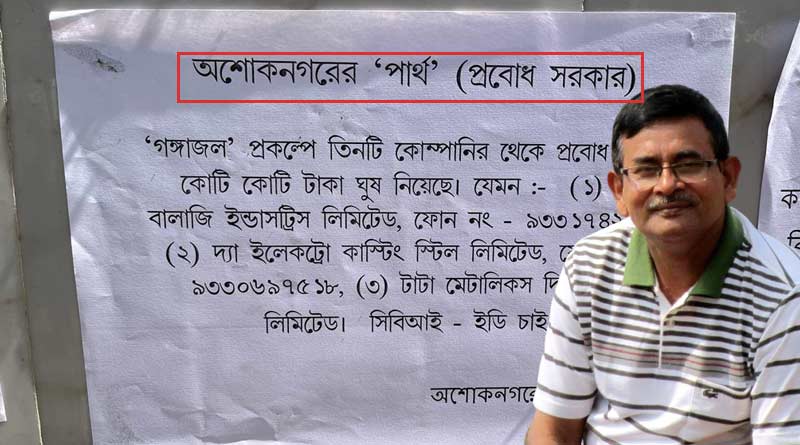 অশোকনগরের ‘পার্থ’ (প্রবোধ সরকার)
‘গঙ্গাজল’ প্রকল্পে তিনটি কোম্পানির থেকে প্রবোধ
কোটি কোটি টাকা ঘুষ নিয়েছে। যেমন :- (১)
বালাজি ইন্ডাসট্রিস লিমিটেড, ফোন নং - ৯৩৩১৭৪
(২) দ্যা ইলেকট্রো কাস্টিং স্টিল লিমিটেড,
৯৩৩০৬৯৭৫১৮, (৩) টাটা মেটালিকস
লিমিটেড। সিবিআই - ইডি চাই
অশোকনগরে